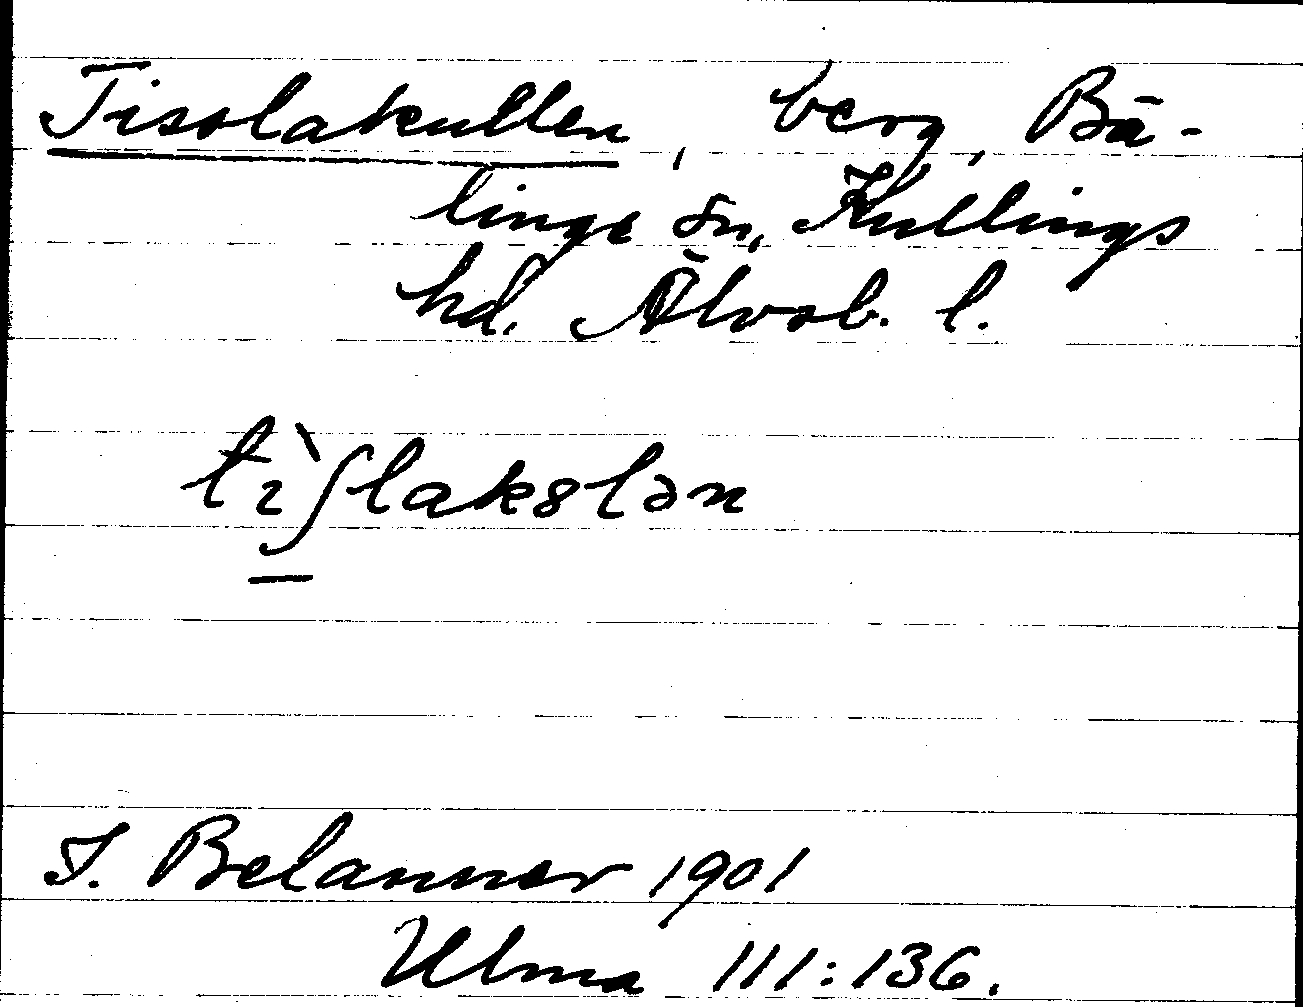 Tisslakullen, berg, Bä-
linge sn, Kullings
hd. Älvsb. l.
tìʃlakslən
T. Belanner 1901
Ulma 111:136.